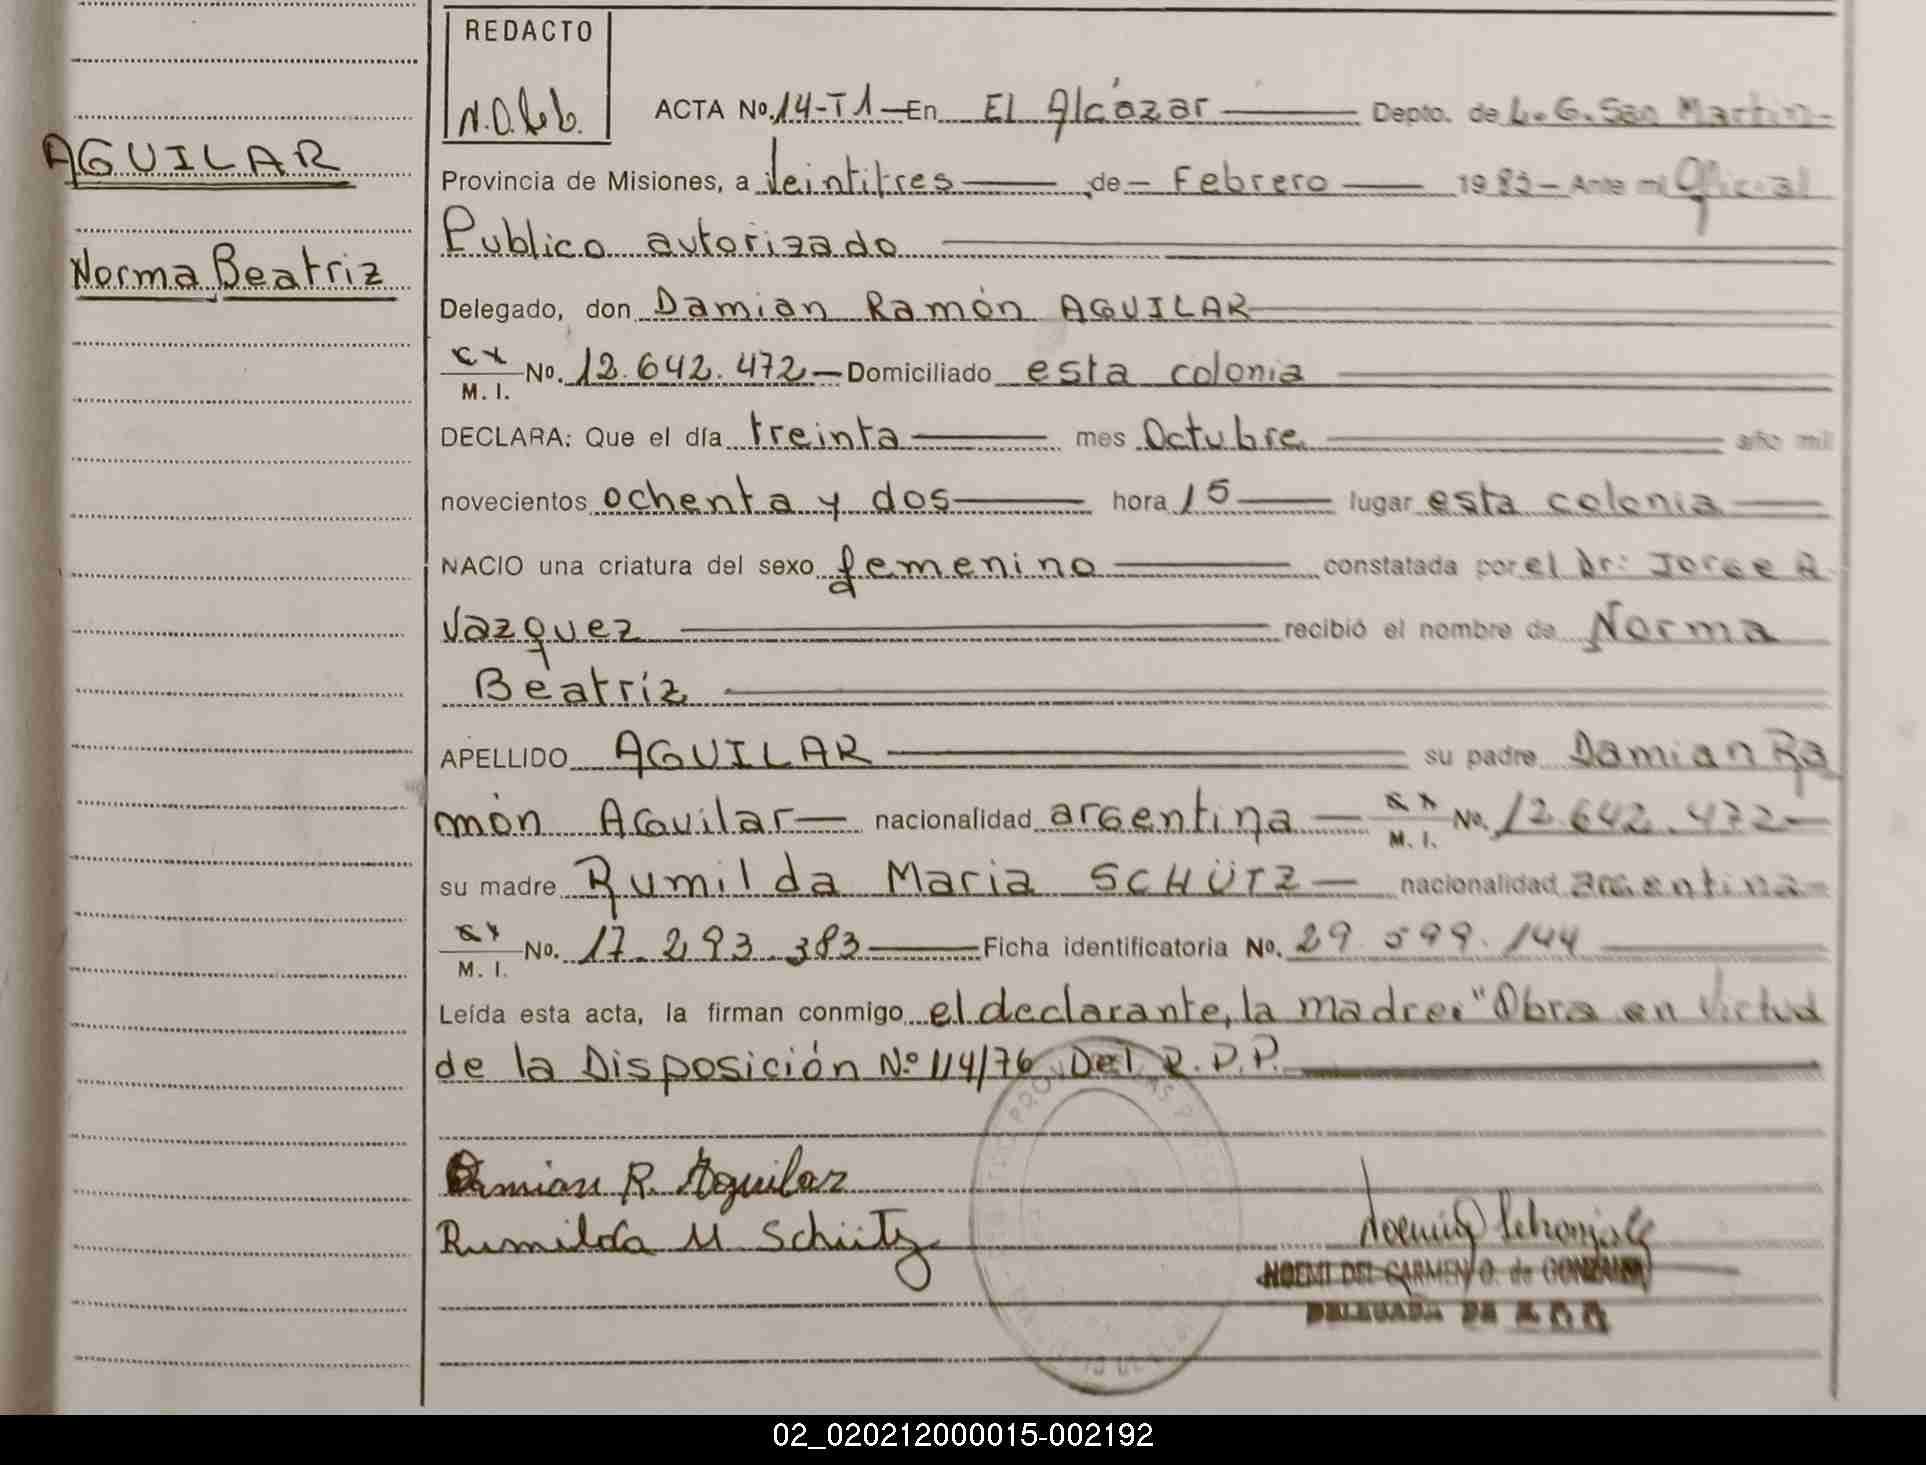 REDACTO
ACTA No. 14-T1 — En El Alcázar — Depto. de L. G. San Martin -
AGUILAR
Provincia de Misiones, a Veintitres — de — Febrero — 1983 - Ante mi Oficial
Publico autorizado
Norma Beatriz
Delegado, don Damian Ramón AGUILAR
M. I. No. 12.642.472 — Domiciliado esta colonia
DECLARA: Que el día treinta — mes Octubre — año mil
novecientos ochenta y dos — hora 15 — lugar esta colonia —
NACIO una criatura del sexo femenino — constatada por el Dr: Jorge A
Vazquez — recibió el nombre de Norma
Beatríz
APELLIDO AGUILAR — su padre Damian Ra
món Aguilar — nacionalidad argentina — M. I. No. 12.642.472 —
su madre Rumilda Maria SCHÜTZ — nacionalidad argentina -
M. I. No. 17.293.383 — Ficha identificatoria No. 29.599.144
Leída esta acta, la firman conmigo el declarante, la madre: "Obra en virtud
de la Disposición Nº 114/76 Del R.P.P.
Damian R. Aguilar
Rumilda M Schütz
NOEMI DEL CARMEN O. de GONZALEZ
DELEGADA DE
02_020212000015-002192